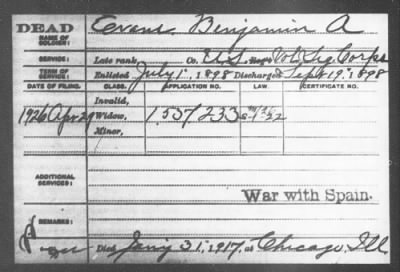 DEAD Evans Benjamin A
NAME OF SOLDIER:
SERVICE: Late rank, Co. U.S. Reg't Vol. Sig. Corps
TERM OF SERVICE: Enlisted July 1, 1898 Discharged Sept. 19, 1898
DATE OF FILING. CLASS. APPLICATION NO. LAW. CERTIFICATE NO.
Invalid,
1926 Apr 29 Widow, 1,557,233
Minor,
ADDITIONAL SERVICES:
War with Spain.
REMARKS:
Died Jany 31, 1917, at Chicago, Ill.